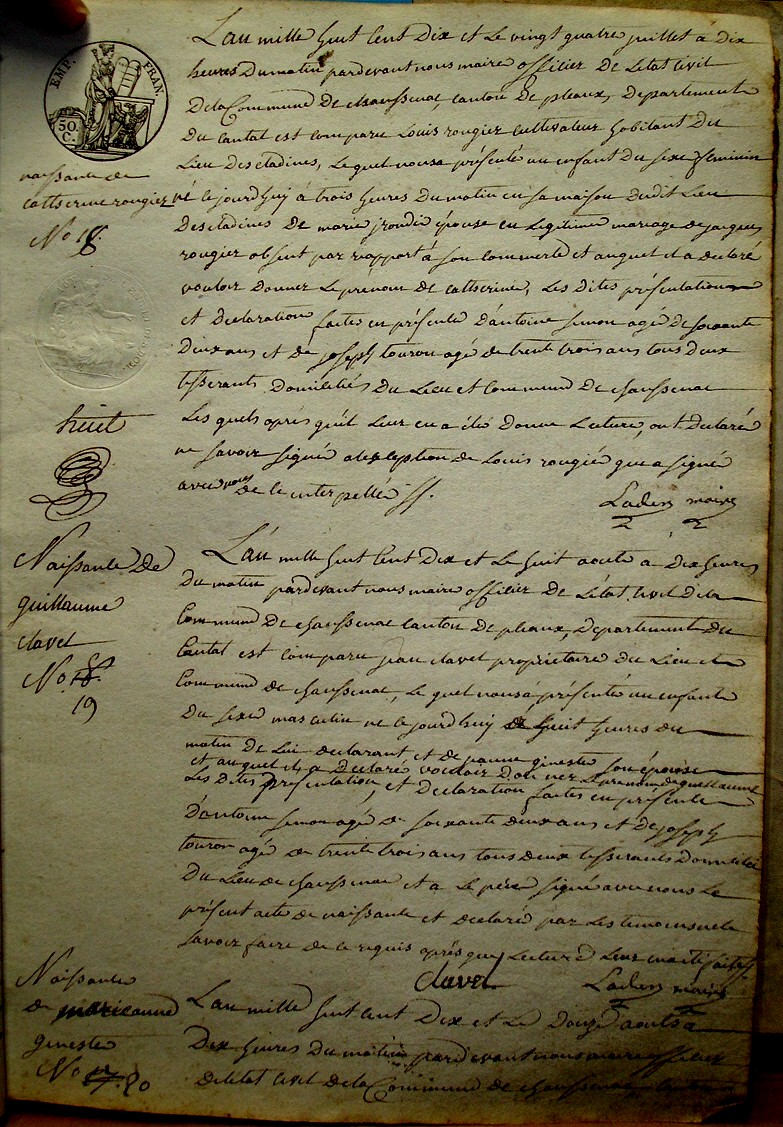 EMP. FRAN.
50. C.
naissance de
catherine rougier
No 18.
L'an mille huit cent dix et le vingt quatre juillet à dix
heures du matin pardevant nous maire officier de l'etat civil
de la Commune de chaussenac, canton de pleaux, departement
du cantal est comparu Louis rougier cultivateur habitant du
Lieu desetadines, Lequel nous a présenté un enfant du sexe feminin
né le jourdhuy à trois heures du matin en sa maison dudit Lieu
desetadines de marie epouse en Legitime mariage de jacques
rougier absent par rapport à son commerce et auquel il a declaré
vouloir donner Le prénom de catherine, Les dites présentation
et declaration faites en présence d'antoine simon agé de soixante
deux ans et de joseph touron agé de trente trois ans tous deux
tisserants domiciliés du Lieu et commune de chaussenac
Les quels après qu'il leur en a été donné Lecture, ont declaré
ne savoir signer a l'exception de Louis rougié que a signé
avec nous de ce interpellé
maire
huit
Naissance de
guillaume
clavel
No 18.
19
L'an mille huit cent dix et le huit aoust à dix heures
du matin pardevant nous maire officier de l'état civil dela
Commune de chaussenac canton de pleaux, departement du
Cantal est comparu jean clavel propriétaire du Lieu et
Commune de chaussenac, Le quel nous a présenté un enfant
du sexe masculin né le jourdhuy huit heures du
matin de Lui declarant et de jeanne gineste son épouse
et auquel il a declaré vouloir donner Le prenom de guillaume
Les dites présentation et declaration faites en présence
d'antoine simon agé de soixante deux ans et de joseph
touron agé de trente trois ans tous deux tisserants domiciliés
du Lieu de chaussenac et a Le père signé avec nous Le
présent acte de naissance et declaré par Les temoins ne le
savoir faire de ce requis après que Lecture Leur en a été faite
Clavel maire
Naissance
de marieanne
gineste
No 20
L'an mille huit cent dix et Le douze aoust à
dix heures du matin pardevant nous maire officier
de l'etat civil dela Commune de chaussenac